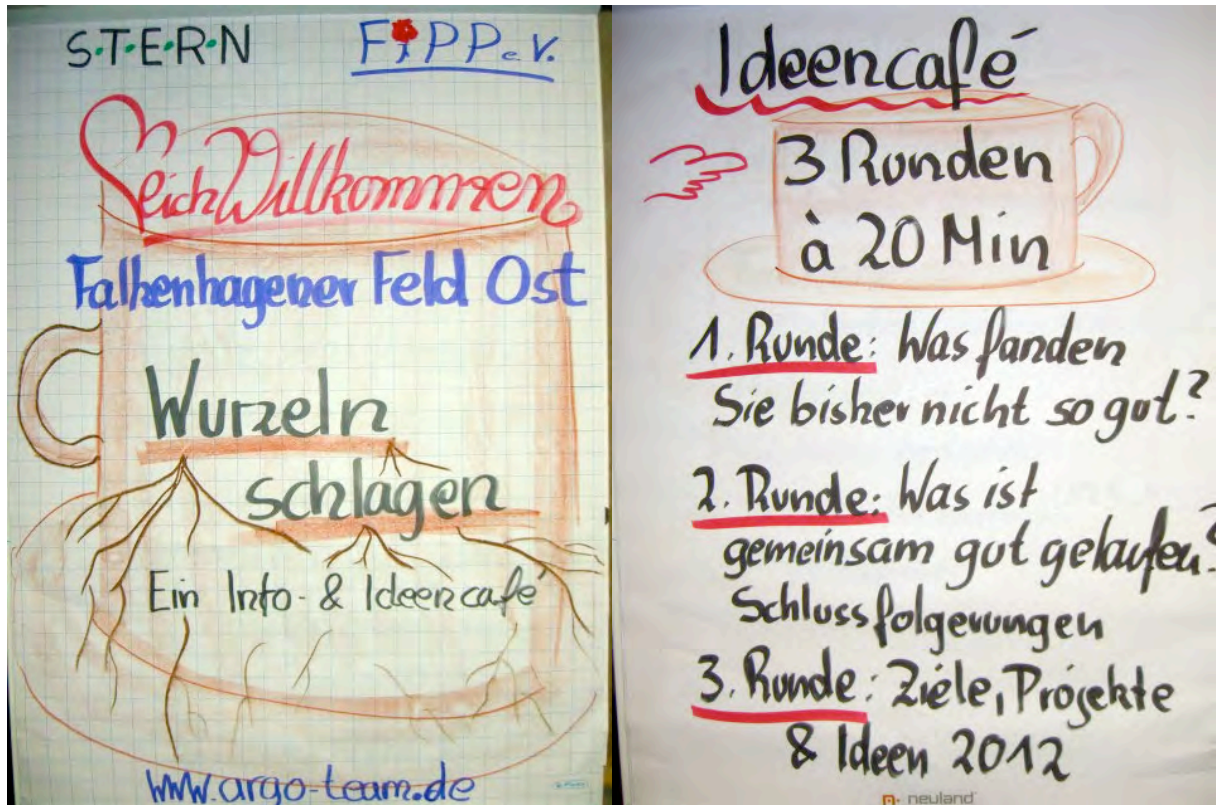 S·T·E·R·N
FiPP e.V.
Herzlich Willkommen
Falkenhagener Feld Ost
Wurzeln
schlagen
Ein Info- & Ideencafé
www.argo-team.de
Ideencafé
3 Runden
à 20 Min
1. Runde: Was fanden
Sie bisher nicht so gut?
2. Runde: Was ist
gemeinsam gut gelaufen?
Schlussfolgerungen
3. Runde: Ziele, Projekte
& Ideen 2012
neuland